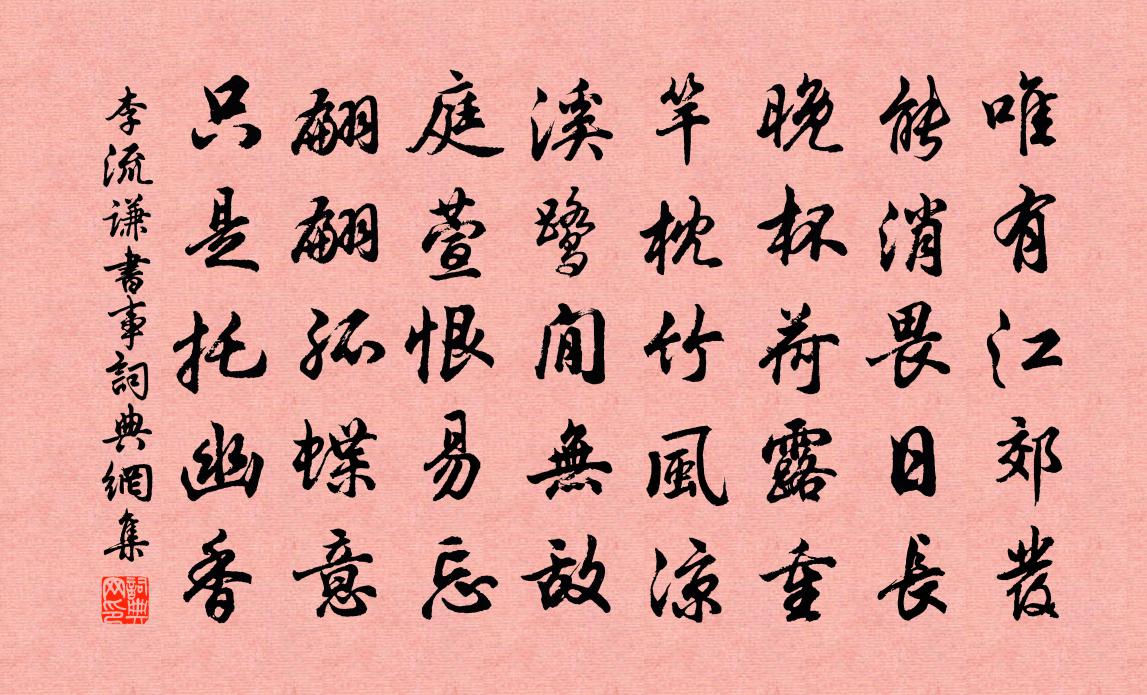 唯有江郊發
能消畏日長
晚杯荷露重
竿枕竹風涼
溪鷺閒無敵
庭萱恨易忘
翩翩孤蝶意
只是托幽香
李流謙書事詞典網集
詞典网印